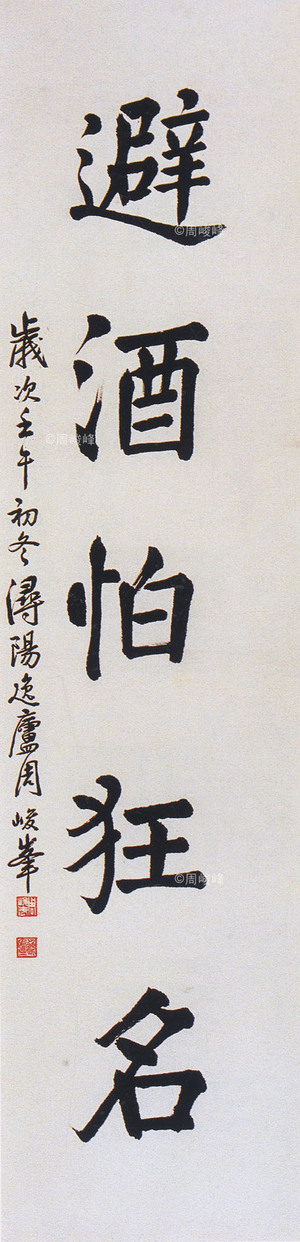 避酒怕狂名
歲次壬午初冬潯陽逸廬周峻峯
©周峻峰
©周峻峰
©周峻峰